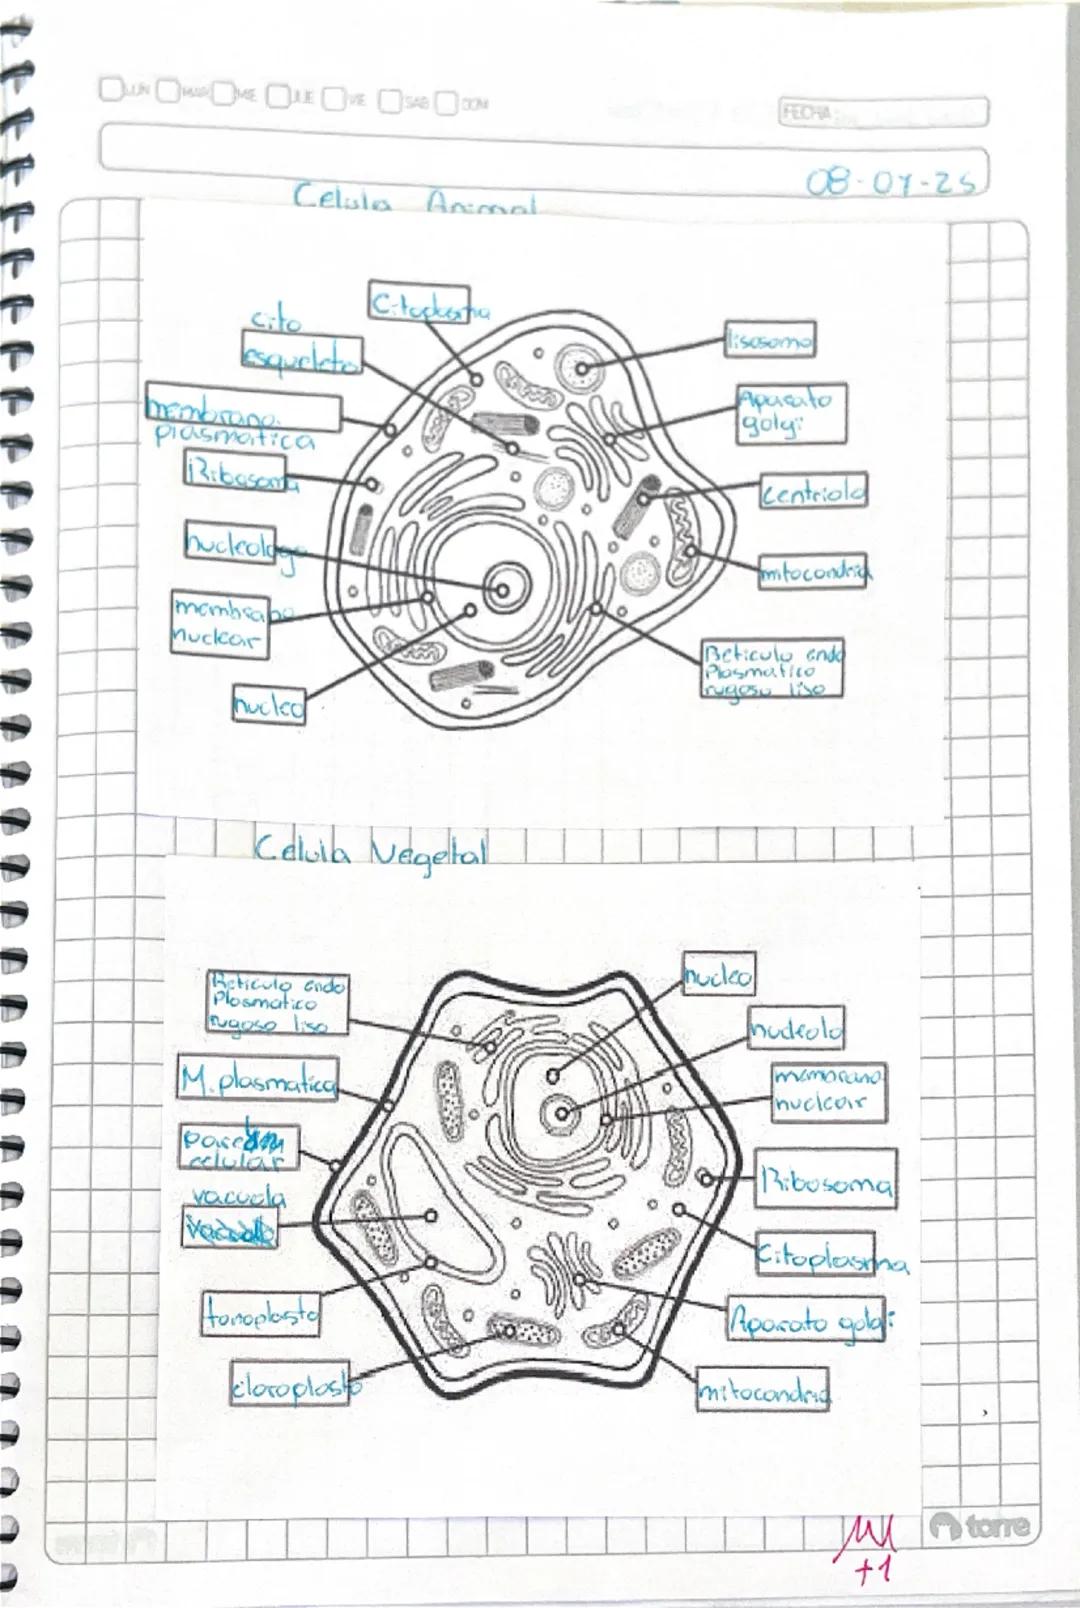 LUN MAR MIE JUE VIE SAB DOM
FECHA:
08-07-25
Celula Animal
Citoplasma
cito
esqueleto
membrana
plasmatica
Ribosoma
nucleolo
membrana
nuclear
nucleo
lisosoma
Aparato
golgi
Centriolo
mitocondria
Reticulo endo
Plasmatico
rugoso liso
Celula Vegetal
Reticulo endo
Plasmatico
rugoso liso
M. plasmatica
pared
celular
vacuola
tonoplasto
cloroplasto
nucleo
nucleolo
membrana
nuclear
Ribosoma
Citoplasma
Aparato golgi
mitocondria
+1
torre